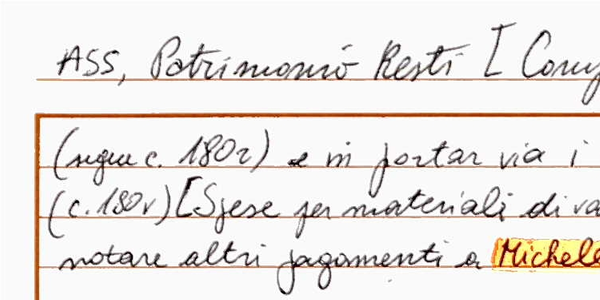 ASS, Patrimonio Resti [ Comp
(segue c. 180r) e in portar via i
(c. 180v) [Spese per materiali di va
notare altri pagamenti a Michele